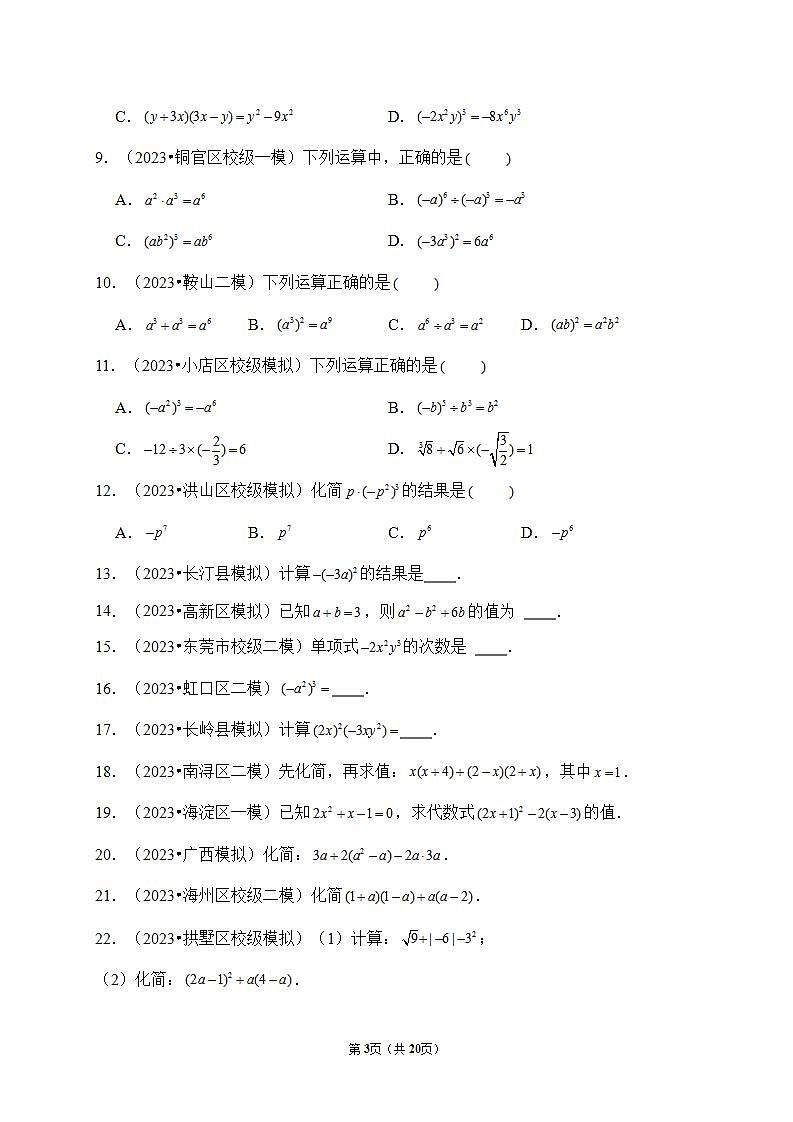 C．(y+3x)(3x−y)=y²−9x²　　D．(−2x²y)³=−8x⁶y³
9．（2023•铜官区校级一模）下列运算中，正确的是(　　)
A．a²·a³=a⁶　　B．(−a)⁶÷(−a)³=−a³
C．(ab²)³=ab⁶　　D．(−3a³)²=6a⁶
10．（2023•鞍山二模）下列运算正确的是(　　)
A．a³+a³=a⁶　　B．(a³)²=a⁹　　C．a⁶÷a³=a²　　D．(ab)²=a²b²
11．（2023•小店区校级模拟）下列运算正确的是(　　)
A．(−a²)³=−a⁶　　B．(−b)⁵÷b³=b²
C．−12÷3×(−2/3)=6　　D．∛8÷√6×(−√(3/2))=1
12．（2023•洪山区校级模拟）化简 p·(−p²)³的结果是(　　)
A．−p⁷　　B．p⁷　　C．p⁶　　D．−p⁶
13．（2023•长汀县模拟）计算−(−3a)²的结果是____．
14．（2023•高新区模拟）已知a+b=3，则a²−b²+6b的值为 ____．
15．（2023•东莞市校级二模）单项式−2x²y³的次数是 ____．
16．（2023•虹口区二模）(−a²)³=____．
17．（2023•长岭县模拟）计算(2x)²(−3xy²)=____．
18．（2023•南浔区二模）先化简，再求值：x(x+4)+(2−x)(2+x)，其中x=1．
19．（2023•海淀区一模）已知2x²+x−1=0，求代数式(2x+1)²−2(x−3)的值．
20．（2023•广西模拟）化简：3a+2(a²−a)−2a·3a．
21．（2023•海州区校级二模）化简(1+a)(1−a)+a(a−2)．
22．（2023•拱墅区校级模拟）（1）计算：√9+|−6|−3²；
（2）化简：(2a−1)²+a(4−a)．
第3页（共20页）